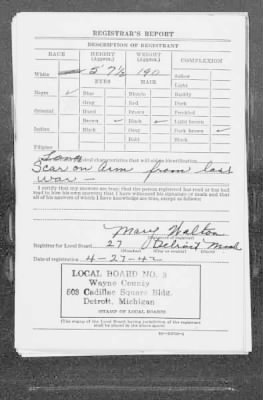 REGISTRAR'S REPORT
DESCRIPTION OF REGISTRANT
RACE HEIGHT (Approx.) WEIGHT (Approx.) COMPLEXION
White 5' 7½ 190 Sallow
EYES HAIR Light
Negro ✓ Blue Blonde Ruddy
Gray Red Dark
Oriental Hazel Brown Freckled
Brown ✓ Black ✓ Light brown
Indian Black Gray Dark brown ✓
Bald Black
Filipino
characteristics that will aid in identification
Scar on arm from last
war —
I certify that my answers are true; that the person registered has read or has had
read to him his own answers; that I have witnessed his signature or mark and that
all of his answers of which I have knowledge are true, except as follows:
Mary Walton
Registrar for Local Board 27 Detroit Mich
Date of registration 4-27-42
LOCAL BOARD NO. 3
Wayne County
503 Cadillac Square Bldg.
Detroit, Michigan
STAMP OF LOCAL BOARD
(The stamp of the Local Board having jurisdiction of the registrant
shall be placed in the above space.)